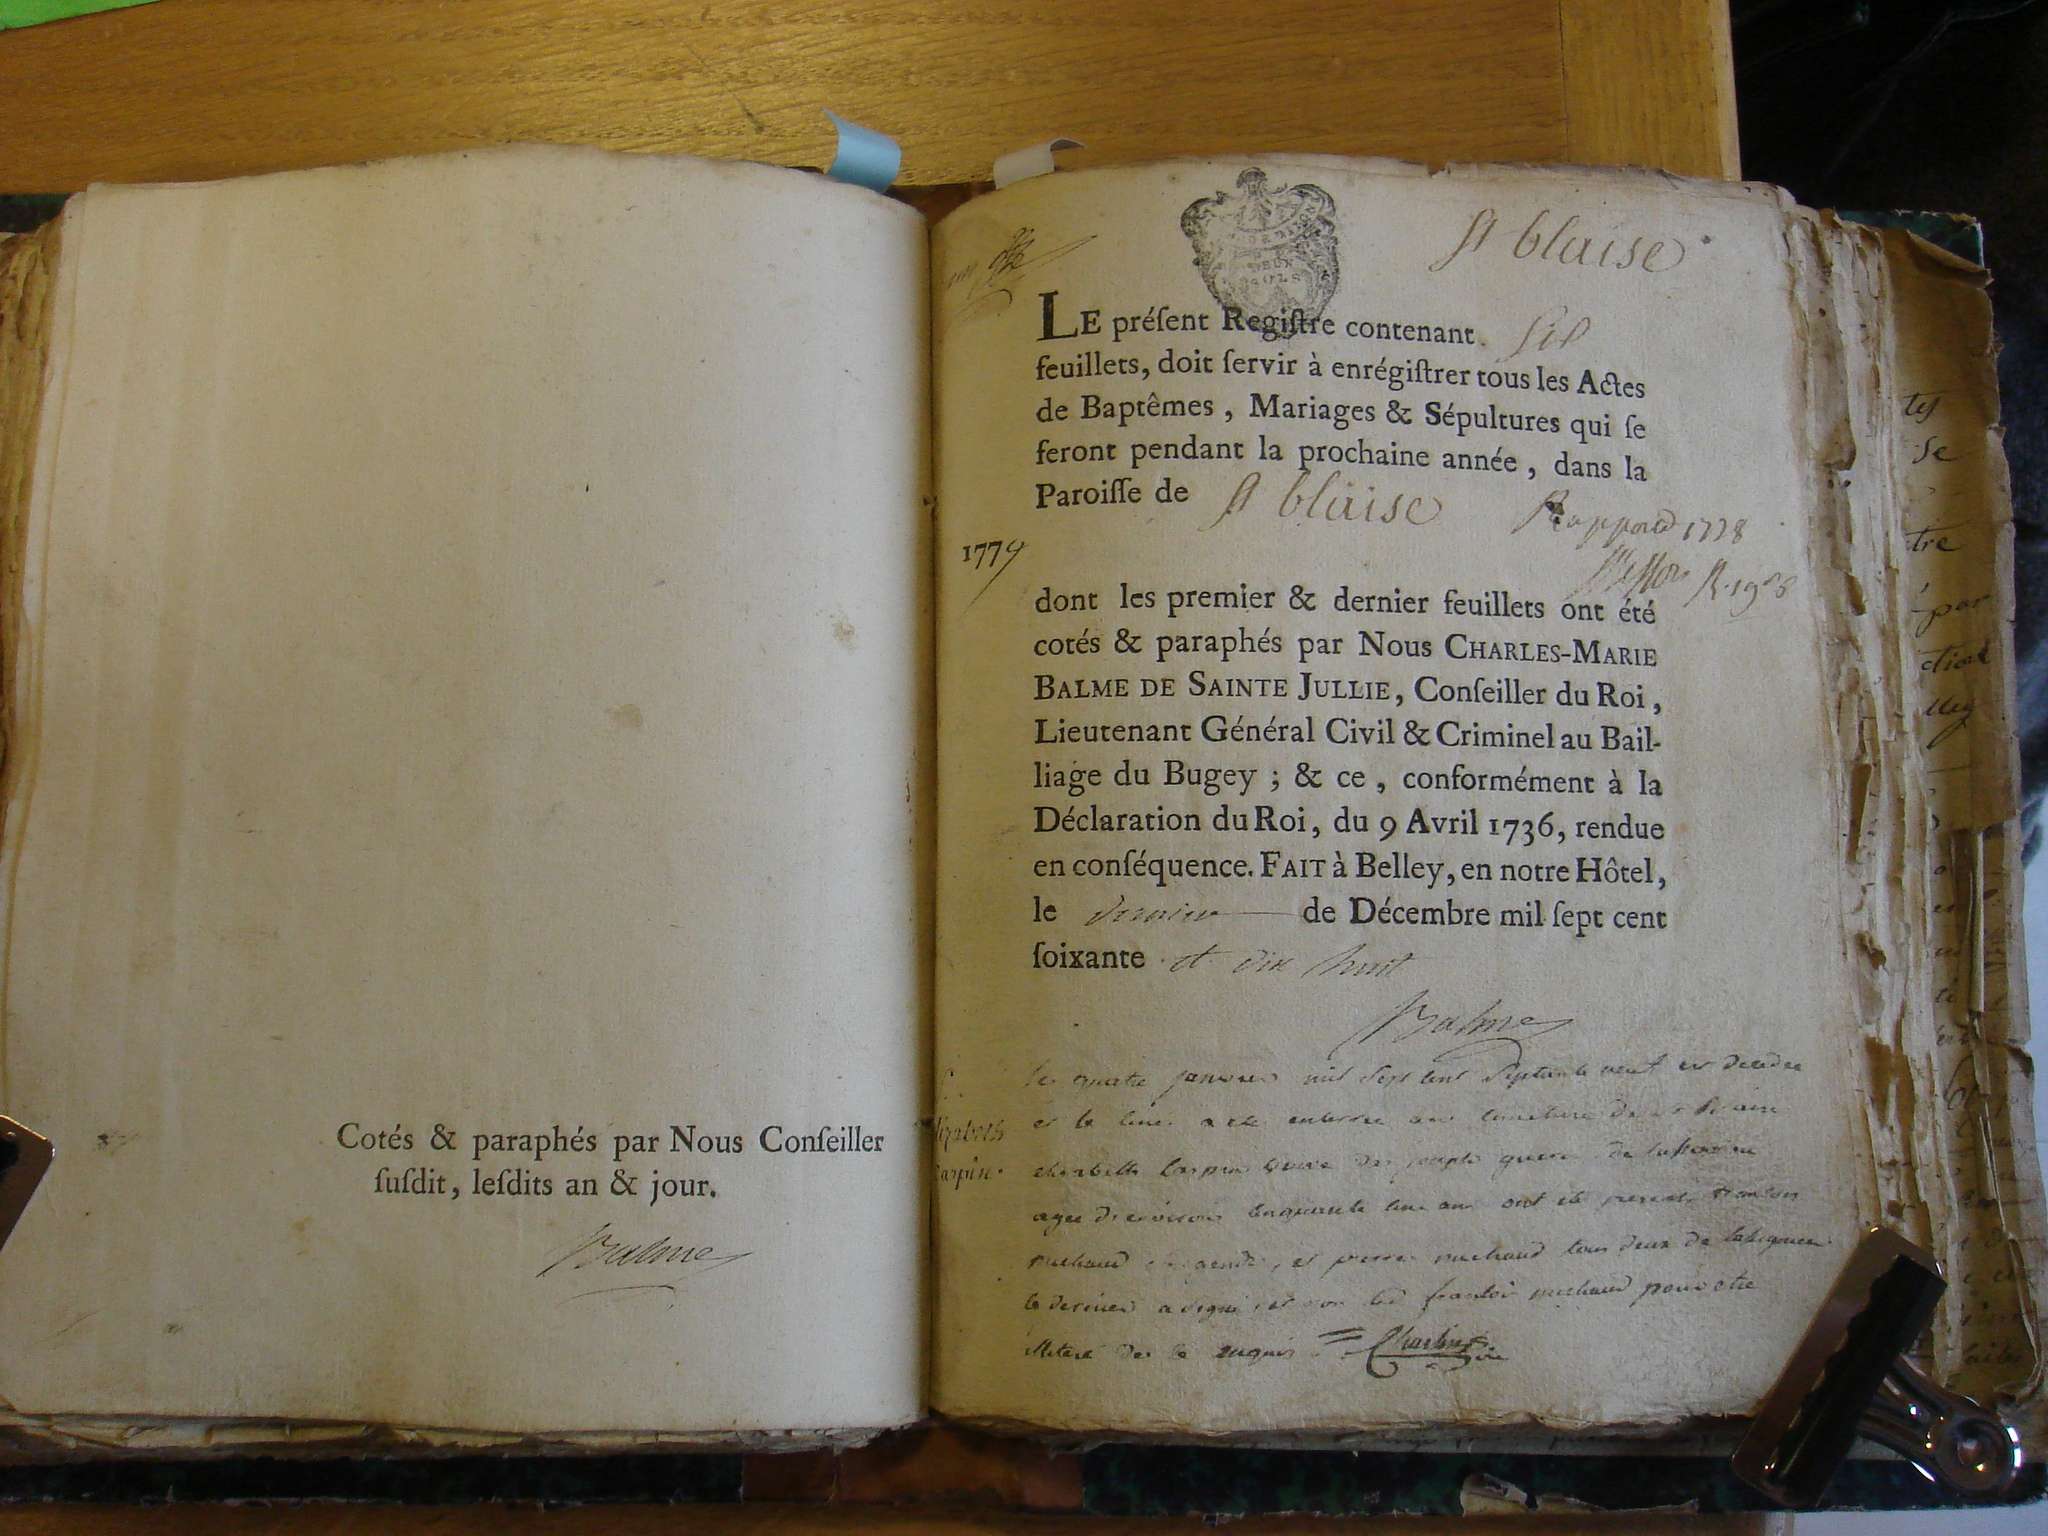 Cotés & paraphés par Nous Conſeiller
ſuſdit, leſdits an & jour.
Balme
St blaise
DEUX
SOLS
LE préſent Regiſtre contenant
feuillets, doit ſervir à enrégiſtrer tous les Actes
de Baptêmes, Mariages & Sépultures qui ſe
feront pendant la prochaine année, dans la
Paroiſſe de St blaise
1779
dont les premier & dernier feuillets ont été
cotés & paraphés par Nous CHARLES-MARIE
BALME DE SAINTE JULLIE, Conſeiller du Roi,
Lieutenant Général Civil & Criminel au Bail-
liage du Bugey ; & ce, conformément à la
Déclaration du Roi, du 9 Avril 1736, rendue
en conſéquence. FAIT à Belley, en notre Hôtel,
le dernier de Décembre mil ſept cent
ſoixante et dix huit
Balme
le quatre janvier mil sept cent septante neuf est decedee
et le a ete enterree au cimetiere de
veuve de de
agee d'environ cinquante ans ont ete presents
michaud et pierre michaud tous deux de
le dernier a signe et non led michaud pour etre
illitere de ce enquis